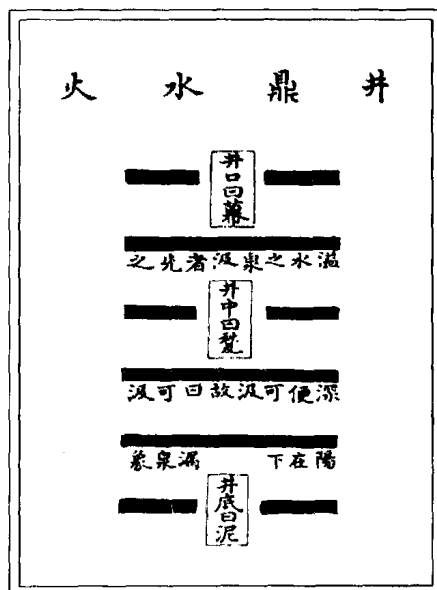 井鼎水火
井口曰幕
溢水之泉汲者先之
井中曰甃
深便可汲故曰可汲
陽在下 漏泉象
井底曰泥